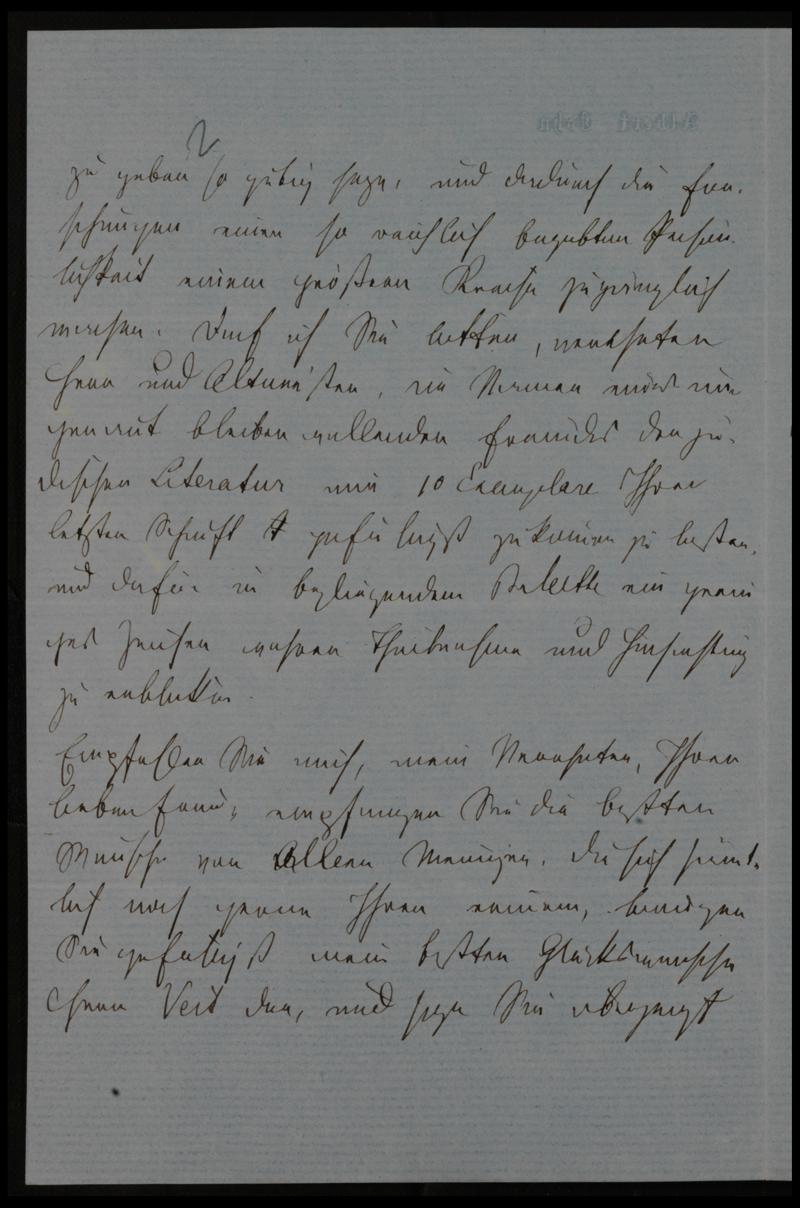 2
zu geben so gütig seyn, und dadurch die For-
schungen einer so reichlich begabten Persön-
lichkeit einem größern Kreise zugänglich
machen. Darf ich Sie bitten, verehrter
Herr und im Namen eines un-
genannt bleiben wollenden Freundes der jü-
dischen Literatur mir 10 Exemplare Ihrer
letzten Schrift gefälligst zukommen zu lassen,
und dafür in beyliegendem Billette ein gerin
ges Zeichen wahrer Theilnahme und Hochachtung
zu erblicken.
Empfehlen Sie mich, mein Verehrter, Ihrer
lieben Frau, empfangen Sie die besten
Wünsche von Allen Meinigen, die sich sämt-
lich noch gerne Ihrer erinnern, bringen
Sie gefälligst meine besten Glückswünsche
Herrn Veit dar, und seyn Sie überzeugt